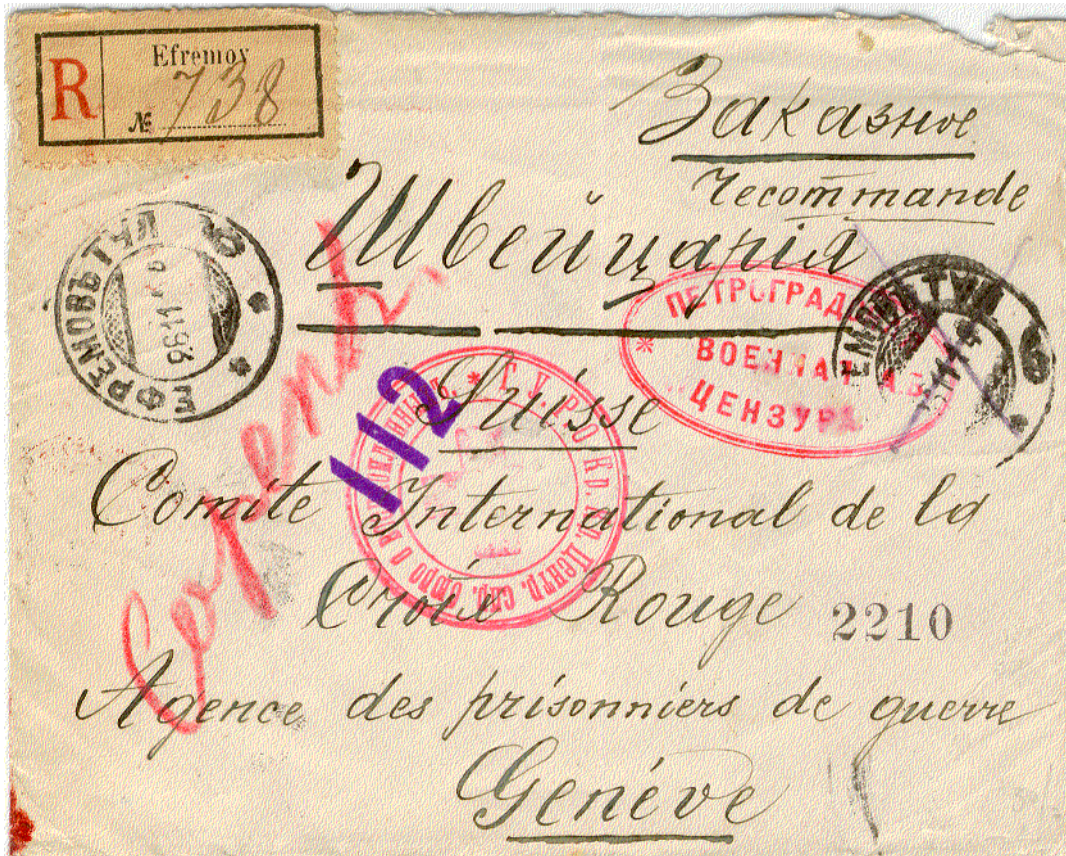 Efremov
R
№ 738
Заказное
recommande
Швейцарія
ЕФРЕМОВЪ ТУЛ
ПЕТРОГРАД
ВОЕННАЯ
ЦЕНЗУРА
ЕМОВЪ ТУЛ
Suisse
112
Comité International de la
Croix Rouge
2210
Agence des prisonniers de guerre
Genéve